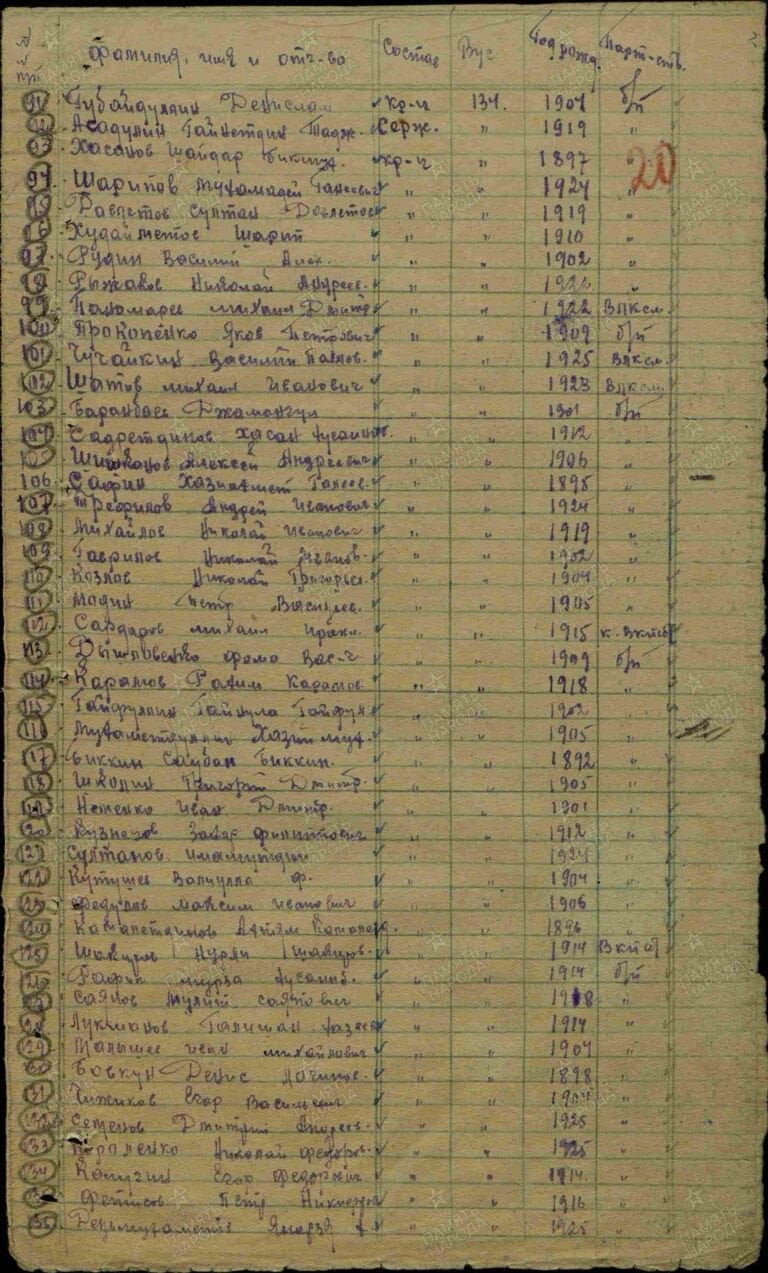 № п/п Фамилия, имя и отч-во Состав Вус Год рожд. Парт-сть.
91 Губайдуллин Денислам кр-ц 134. 1907 б/п
92 Асадулин Гайнетдин Тадж. серж. " 1919 "
93 Хасанов Шайдар кр-ц " 1897 "
20
94 Шарипов Мухамадей Ганеевич " " 1924 "
95 Давлетов Султан Довлетов " " 1919 "
96 Худайметов Шарип " " 1910 "
97 Рудин Василий Алек. " " 1902 "
98 Рыжаков Николай Андреев. " " 1922 "
99 Пономарев Михаил Дмитр. " " 1922 Влксм.
100 Прокопенко Яков Петрович " " 1909 б/п
101 Чучайкин Василий Павлов. " " 1925 Влксм.
102 Шатов Михаил Иванович " " 1923 Влксм.
103 Баранбаев Джамангул " " 1901 б/п
104 Садретдинов Хасан Хусаинов. " " 1912 "
105 Алексей Андреевич " " 1906 "
106 Сафин Хазиахмет Ганеев. " " 1895 "
107 Трефилов Андрей Иванович " " 1924 "
108 Михайлов Николай Иванович " " 1919 "
109 Гаврилов Николай Иванов. " " 1902 "
110 Козлов Николай Григорьев. " " 1904 "
111 Модин Петр Васильев. " " 1905 "
112 Сардаров Михаил Иракл. " " 1915 к. Вкпб
113 Дышловенко Фома Вас-ч " " 1909 б/п
114 Карамов Рахим Карамов " " 1918 "
115 Гайфуллин Гайнула Гайфул " " 1902 "
116 Мухаметуллин Хазий Мух. " " 1905 "
117 Биккин Саубан Биккин. " " 1892 "
118 Школин Григорий Дмитр. " " 1905 "
119 Неменко Иван Дмитр. " " 1901 "
120 Кузнецов Захар Филиппович " " 1912 "
121 Султанов " " 1924 "
122 Кутушев Валиулла Ф. " " 1904 "
123 Федулов Максим Иванович " " 1906 "
124 Камалетдинов Ахтям Камалов. " " 1896 "
125 Шакиров Нурли Шакиров. " " 1914 Вкпб
126 Рафик Мурза Хусаинов. " " 1914 б/п
127 Саянов Мулий Саянович " " 1918 "
128 Лукманов Галишан Фазеев " " 1914 "
129 Малышев Иван Михайлович " " 1904 "
130 Бовкун Денис Логинов. " " 1898 "
131 Чижиков Егор Васильевич " " 1904 "
132 Семенов Дмитрий Андреев. " " 1925 "
133 Короленко Николай Федоров. " " 1925 "
134 Калугин Егор Федорович " " 1914. "
135 Фетисов Петр " " 1916 "
136 " " 1925 "